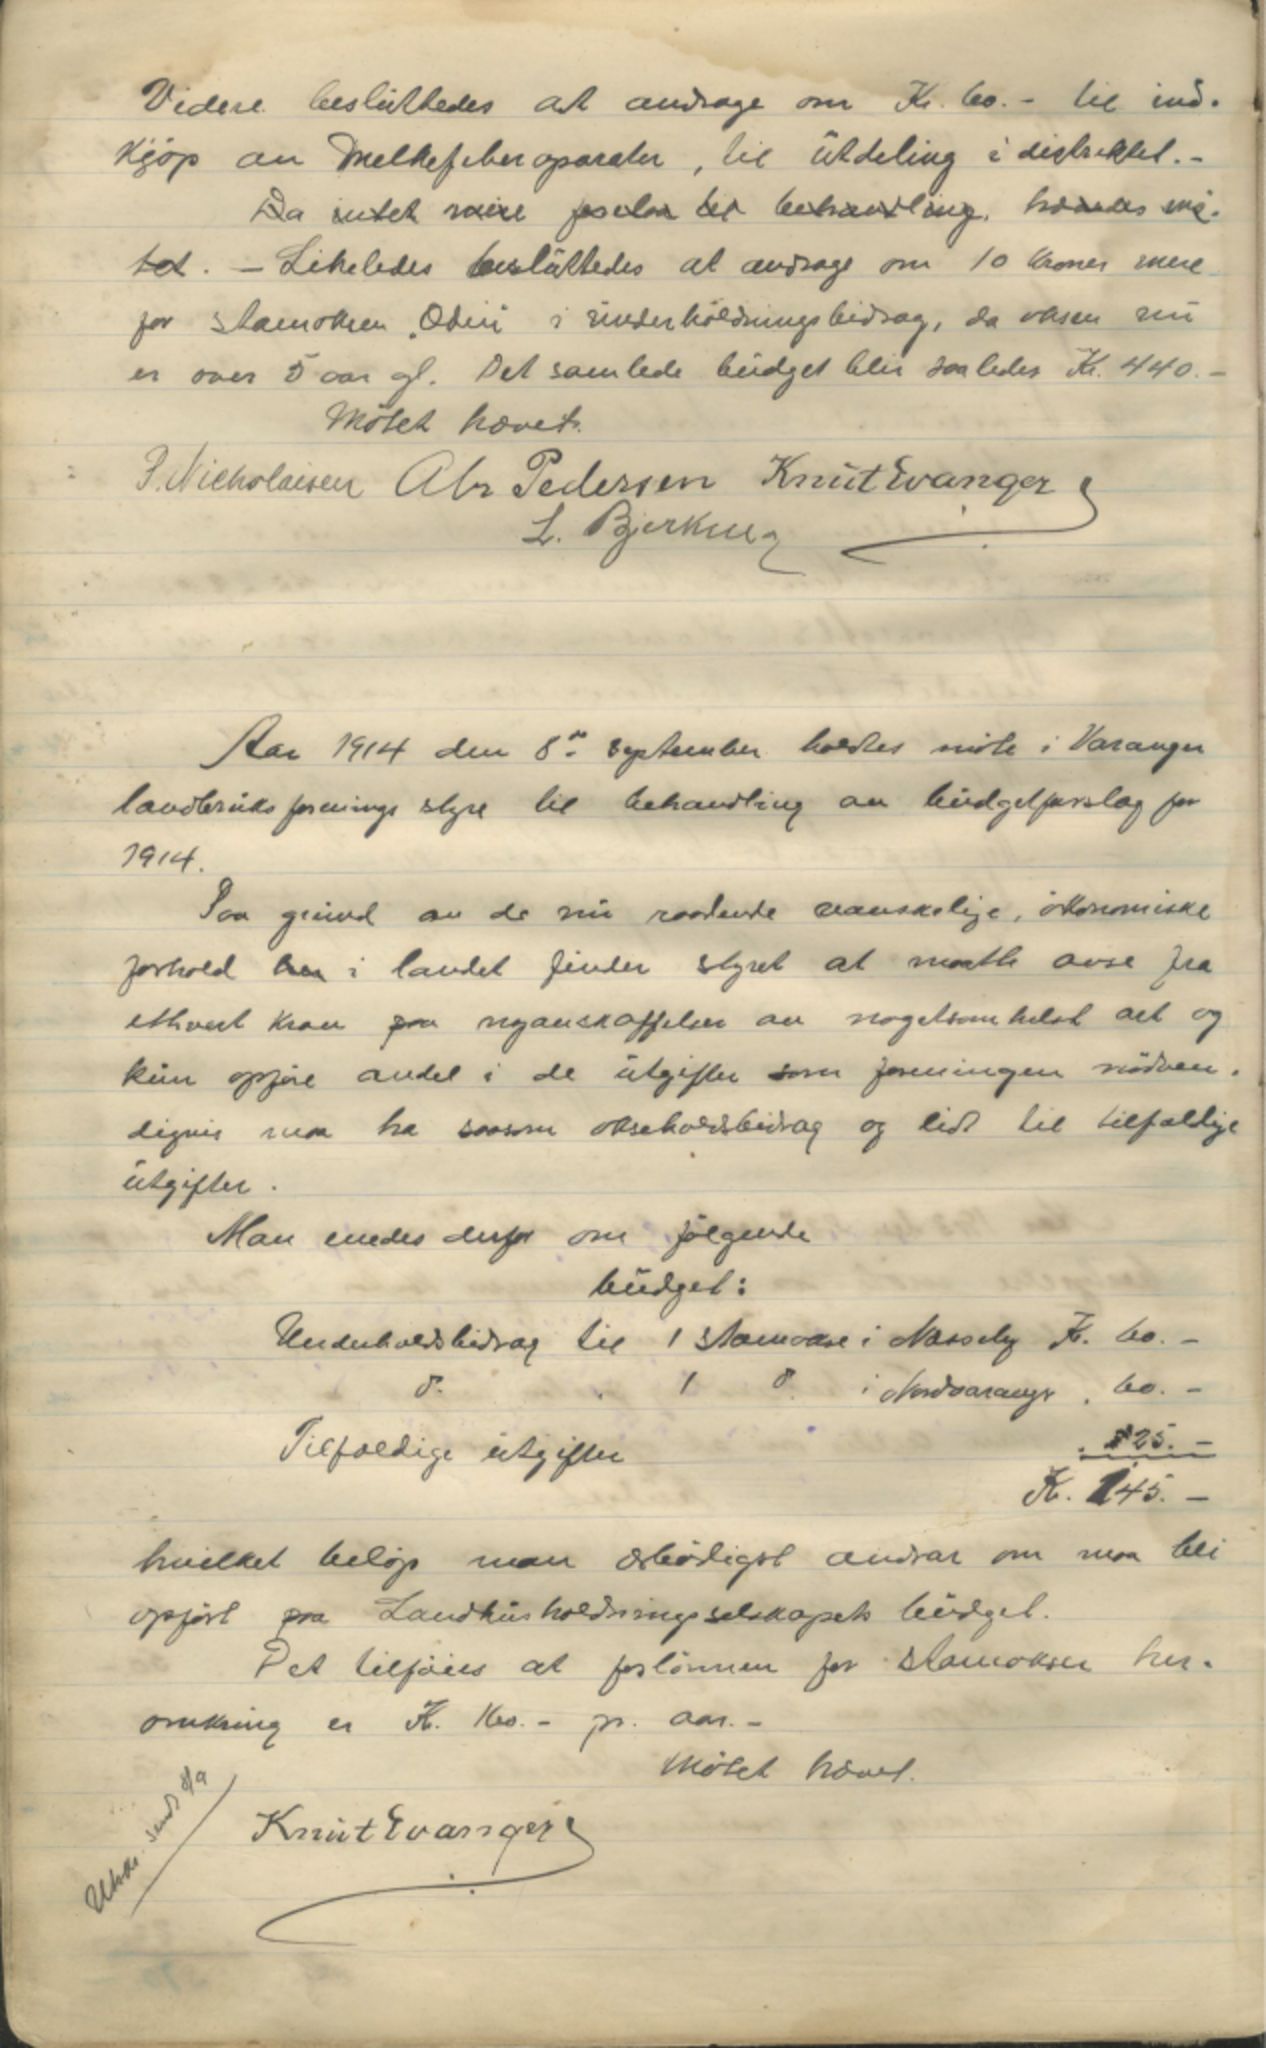 Videre besluttedes at andrage om Kr. 60.- til ind-
kjøp av melkefeberaparater, til utdeling i distriktet.-
Da intet mere forelaa til behandling, hævedes mø-
tet. - Likeledes besluttedes at andrage om 10 kroner mere
for stamoksen "Odin" i underholdningsbidrag, da oksen nu
er over 5 aar gl. Det samlede budget blir saaledes Kr. 440.-
Møtet hævet.
P. Nicholaisen Abr Pedersen Knut Evanger
L. Bjerkeng
Aar 1914 den 8de september holdtes møte i Varanger
landbruksforenings styre til behandling av budgetforslag for
1914.
Paa grund av de nu raadende vanskelige, økonomiske
forhold her i landet finder styret at maatte avse fra
ethvert krav paa nyanskaffelser av nogetsomhelst art og
kun opføre andel i de utgifter som foreningen nødven-
digvis maa ha saasom okseholdsbidrag og lidt til tilfældige
utgifter.
Man enedes derfor om følgende
budget:
Underholdsbidrag til 1 stamokse i Nesseby Kr. 60.-
d. " 1 d. i Nordvaranger " 60.-
Tilfældige utgifter " 25.-
Kr. 145.-
hvilket beløp man ærbødigst andrar om maa bli
opført paa Landhusholdningsselskapets budget.
Det tilføies at forlønnen for stamokser her-
omkring er Kr. 160.- pr. aar.-
Møtet hævet.
Utskr. sendt 8/9
Knut Evanger